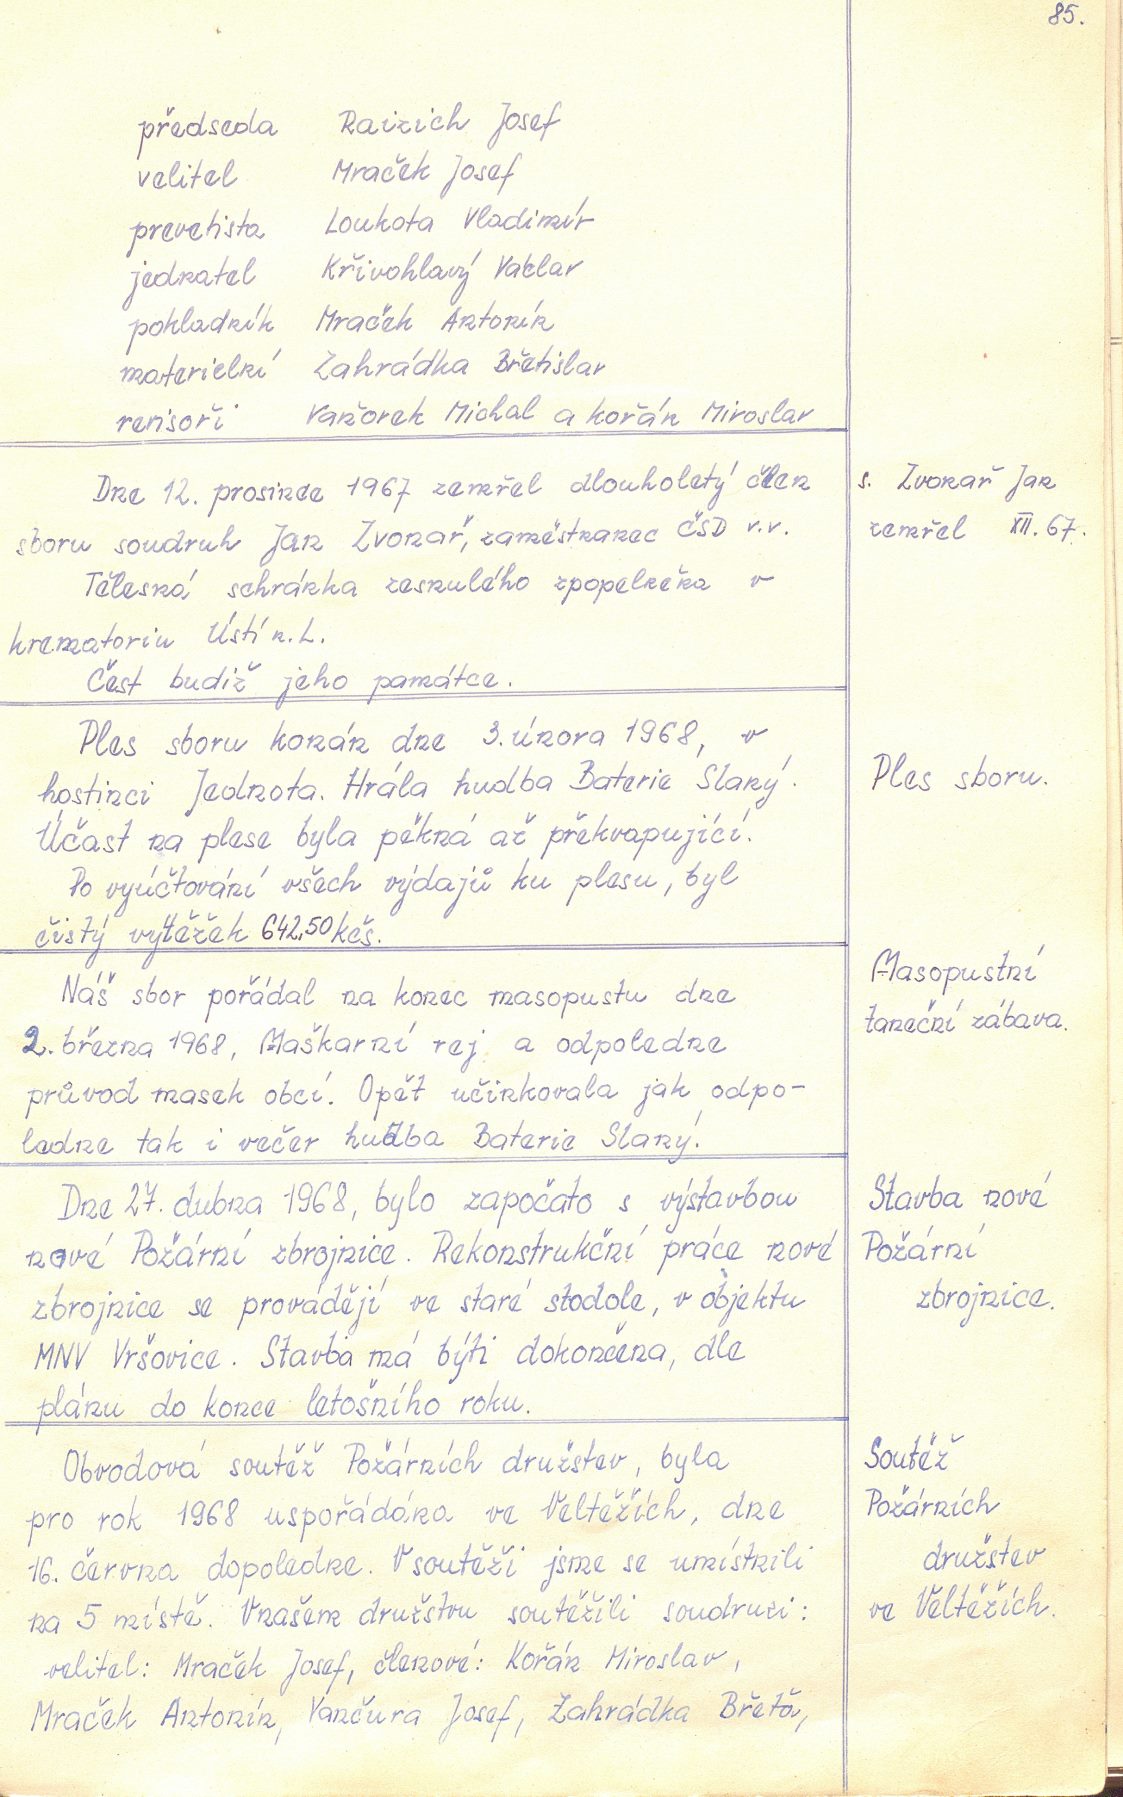 85.
předseda Raizich Josef
velitel Mraček Josef
prevetista Loukota Vladimír
jednatel Křivohlavý Václav
pokladník Mraček Antonín
materielní Zahrádka Břetislav
revisoři Vaňorek Michal a Kořán Miroslav
Dne 12. prosince 1967 zemřel dlouholetý člen
sboru soudruh Jan Zvonař, zaměstnanec ČSD v.v.
Tělesná schránka zesnulého zpopelněna v
krematoriu Ústí n.L.
Čest budiž jeho památce.
s. Zvonař Jan
zemřel XII. 67.
Ples sboru konán dne 3. února 1968, v
hostinci Jednota. Hrála hudba Baterie Slaný.
Účast na plese byla pěkná až překvapující.
Po vyúčtování všech výdajů ku plesu, byl
čistý výtěžek 642,50 Kčs.
Ples sboru.
Náš sbor pořádal na konec masopustu dne
2. března 1968, Maškarní rej a odpoledne
průvod masek obcí. Opět učinkovala jak odpo-
ledne tak i večer hudba Baterie Slaný.
Masopustní
taneční zábava.
Dne 27. dubna 1968, bylo započato s výstavbou
nové Požární zbrojnice. Rekonstrukční práce nové
zbrojnice se provádějí ve staré stodole, v objektu
MNV Vršovice. Stavba má býti dokončena, dle
plánu do konce letošního roku.
Stavba nové
Požární
zbrojnice.
Obvodová soutěž Požárních družstev, byla
pro rok 1968 uspořádána ve Veltěžích, dne
16. června dopoledne. V soutěži jsme se umístnili
na 5 místě. V našem družstvu soutěžili soudruzi:
velitel: Mraček Josef, členové: Kořán Miroslav,
Mraček Antonín, Vančura Josef, Zahrádka Břeťa,
Soutěž
Požárních
družstev
ve Veltěžích.